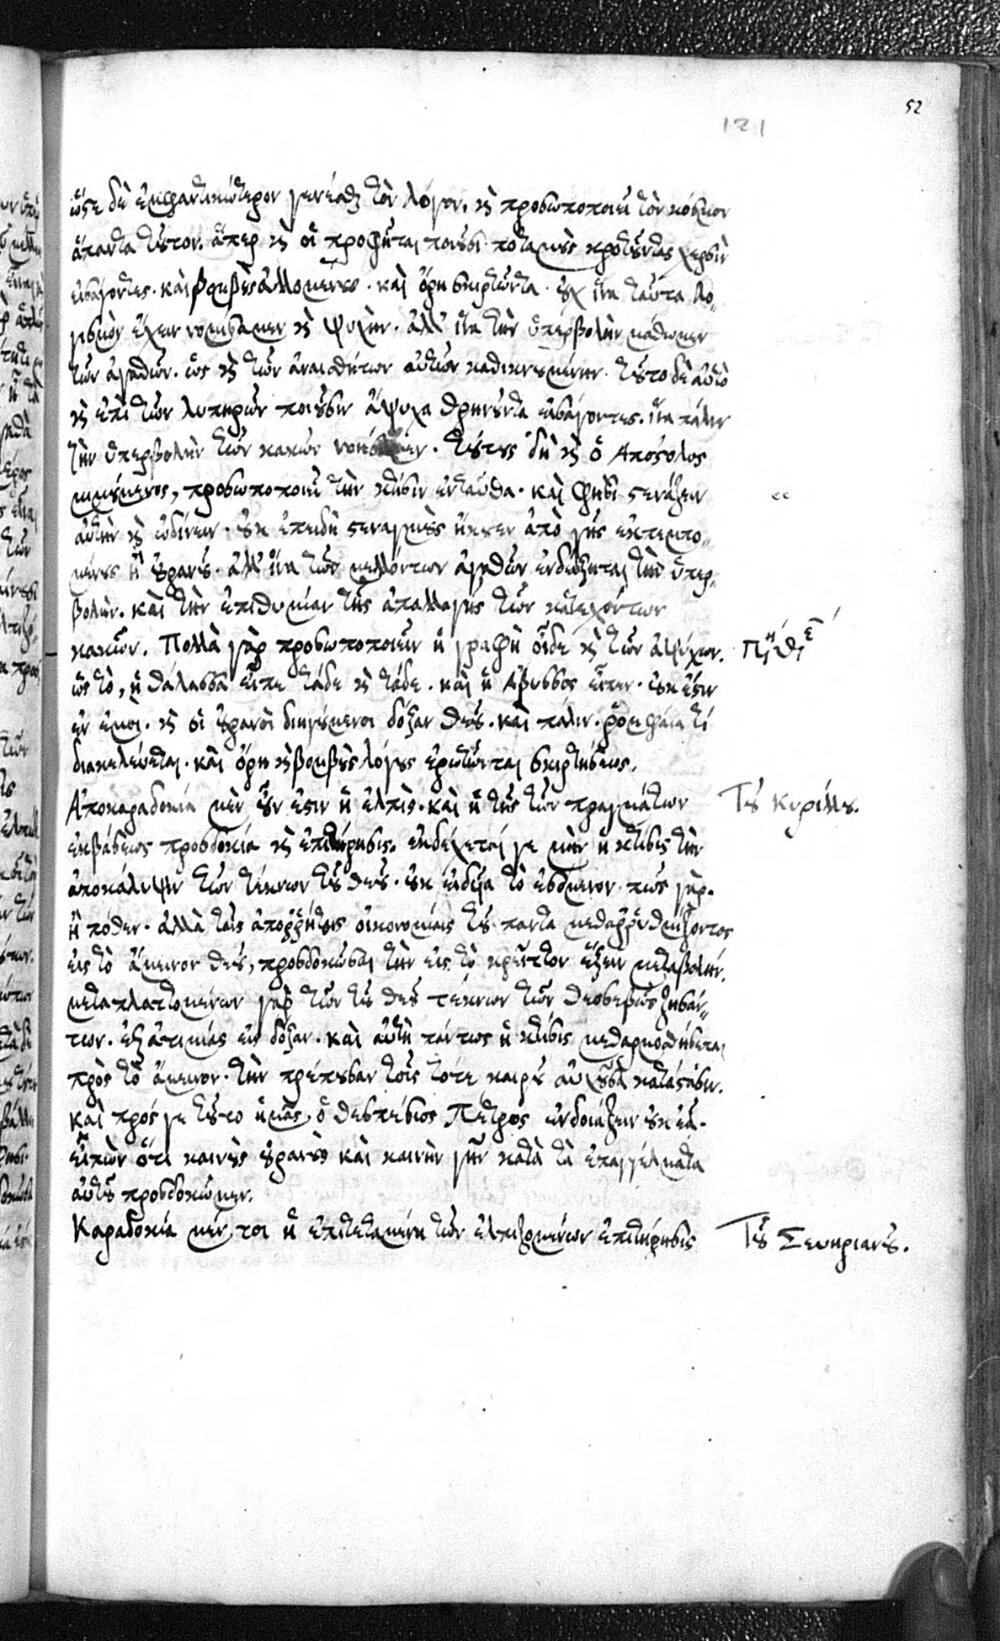 52
121
ὥστε δὲ ἐμφαντικώτερον γενέσθαι τὸν λόγον, καὶ προσωποποιεῖ τὸν κόσμον
ἅπαντα τοῦτον. ἅπερ καὶ οἱ προφῆται ποιοῦσι ποταμοὺς κροτοῦντας χερσὶν
εἰσάγοντες. καὶ βουνοὺς ἁλλομένους. καὶ ὄρη σκιρτῶντα. οὐχ ἵνα ταῦτα λο-
γισμὸν ἔχειν νομίσωμεν καὶ ψυχὴν. ἀλλ' ἵνα τὴν ὑπερβολὴν μάθωμεν
τῶν ἀγαθῶν. ὡς καὶ τῶν ἀναισθήτων αὐτῶν καθικνουμένην. τοῦτο δὲ αὐτὸ
καὶ ἐπὶ τῶν λυπηρῶν ποιοῦσιν ἄψυχα θρηνοῦντα εἰσάγοντες. ἵνα πάλιν
τὴν ὑπερβολὴν τῶν κακῶν νοήσωμεν. τούτους δὴ καὶ ὁ Ἀπόστολος
μιμούμενος, προσωποποιεῖ τὴν κτίσιν ἐνταῦθα. καὶ φησὶ στενάζειν
αὐτὴν καὶ ὠδίνειν. οὐκ ἐπειδὴ στεναγμοὺς ἤκουεν ἀπὸ γῆς ἐκπεμπο-
μένους ἢ οὐρανοῦ. ἀλλ' ἵνα τῶν μελλόντων ἀγαθῶν ἐνδείξηται τὴν ὑπερ-
βολὴν. καὶ τὴν ἐπιθυμίαν τῆς ἀπαλλαγῆς τῶν κατεχόντων
κακῶν. Πολλὰ γὰρ προσωποποιεῖν ἡ γραφὴ οἶδε καὶ τῶν ἀψύχων.
ὡς τὸ, ἡ θάλασσα εἶπε τάδε καὶ τάδε. καὶ ἡ Ἄβυσσος εἶπεν. οὐκ ἔστιν
ἐν ἐμοὶ. καὶ οἱ οὐρανοὶ διηγούμενοι δόξαν θεοῦ. καὶ πάλιν. ῥομφαία τί
διακελεύεται. καὶ ὄρη καὶ βουνοὺς λόγους ἐρωτῶνται σκιρτήσεως.
Ἀποκαραδοκία μὲν οὖν ἐστιν ἡ ἐλπὶς. καὶ ἡ τῆς τῶν πραγμάτων
Τοῦ Κυρίλλου.
ἐκβάσεως προσδοκία καὶ ἐπιτήρησις. ἐκδέχεταί γε μὴν ἡ κτίσις τὴν
ἀποκάλυψιν τῶν τέκνων τοῦ θεοῦ. οὐκ εἰδυῖα τὸ ἐσόμενον. πῶς γὰρ.
ἢ πόθεν. ἀλλὰ ταῖς ἀπορρήτοις οἰκονομίαις τοῦ πάντα μεθαρρυθμίζοντος
εἰς τὸ ἄμεινον θεοῦ, προσδοκῶσα τὴν εἰς τὸ κρεῖττον ἕξειν μεταβολὴν.
μεταπλαττομένων γὰρ τῶν τοῦ θεοῦ τέκνων τῶν θεοσεβῶς ζησάν-
των. ἐξ ἀτιμίας εἰς δόξαν. καὶ αὐτὴ πάντως ἡ κτίσις μεθαρμοσθήσεται
πρὸς τὸ ἄμεινον. τὴν πρέπουσαν τοῖς τότε καιροῖς αὐχοῦσα κατάστασιν.
καὶ πρός γε τοῦτο ἡμᾶς, ὁ θεσπέσιος Πέτρος ἐνδοιάζειν οὐκ ἐᾷ.
εἰπὼν ὅτι καινοὺς οὐρανοὺς καὶ καινὴν γῆν κατὰ τὰ ἐπαγγέλματα
αὐτοῦ προσδοκῶμεν.
Καραδοκία μέν, τοι ἡ ἐπιτεταμένη τῶν ἐλπιζομένων ἐπιτήρησις
Τοῦ Σευηριανοῦ.